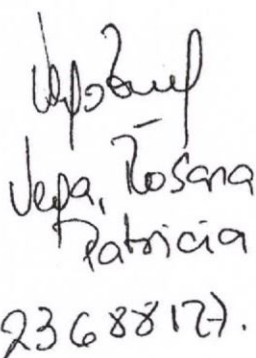 Vega, Rosana
Patricia
23688127.